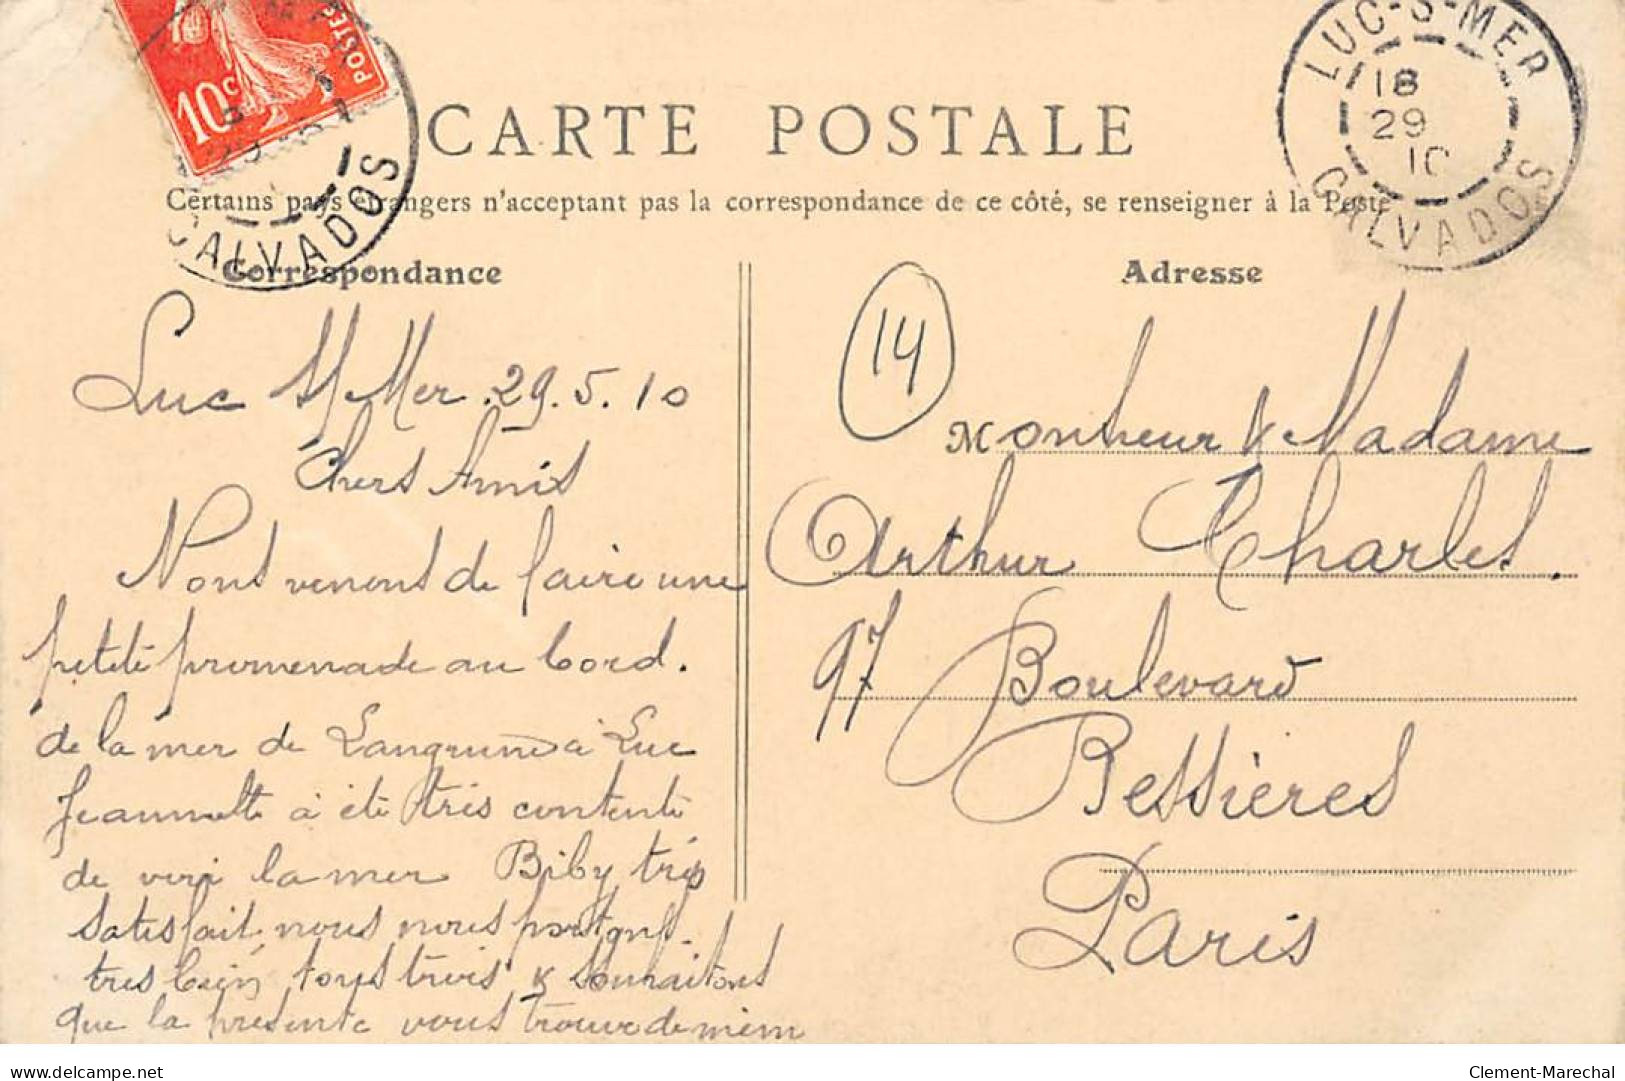 10c
POSTES
CALVADOS
LUC-S-MER
18
29
10
CALVADOS
CARTE POSTALE
Certains pays étrangers n'acceptant pas la correspondance de ce côté, se renseigner à la Poste
Correspondance
Luc S/ Mer. 29.5.10
Chers Amis
Nous venons de faire une
petite promenade au bord.
de la mer de Langrune à Luc
Jeannette à été très contente
de voir la mer Biby très
satisfait nous nous portons.
tres bien tous trois & souhaitons
que la présente vous trouve de mêm
Adresse
14
Monsieur & Madame
Arthur Charles.
97 Boulevard
Bessières
Paris
delcampe.net
Clement-Marechal